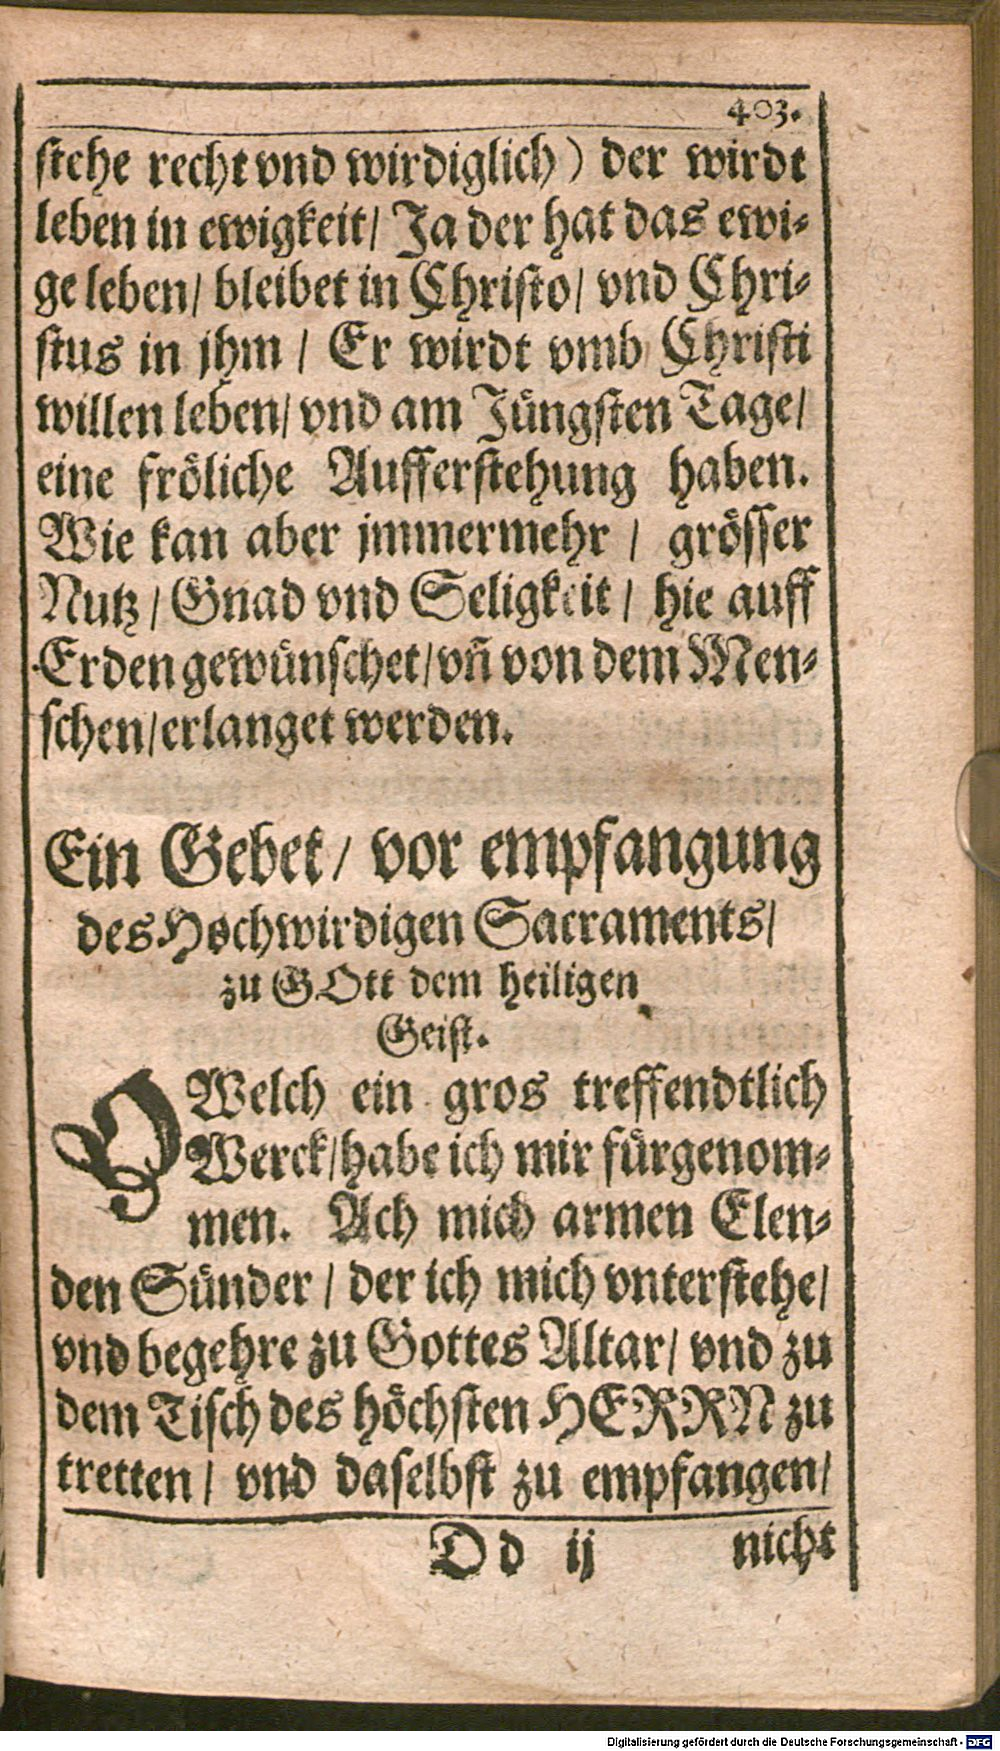 403.
stehe recht vnd wirdiglich) der wirdt
leben in ewigkeit/ Ja der hat das ewi-
ge leben/ bleibet in Christo/ vnd Chri-
stus in jhm / Er wirdt vmb Christi
willen leben/ vnd am Jüngsten Tage/
eine fröliche Aufferstehung haben.
Wie kan aber jmmermehr / grösser
Nutz / Gnad vnd Seligkeit / hie auff
Erden gewünschet/ vñ von dem Men-
schen/ erlanget werden.
Ein Gebet / vor empfangung
des Hochwirdigen Sacraments/
zu GOtt dem heiligen
Geist.
O Welch ein gros treffendtlich
Werck/ habe ich mir fürgenom-
men. Ach mich armen Elen-
den Sünder / der ich mich vnterstehe/
vnd begehre zu Gottes Altar/ vnd zu
dem Tisch des höchsten HERRN zu
tretten / vnd daselbst zu empfangen/
Dd ij nicht
Digitalisierung gefördert durch die Deutsche Forschungsgemeinschaft - DFG